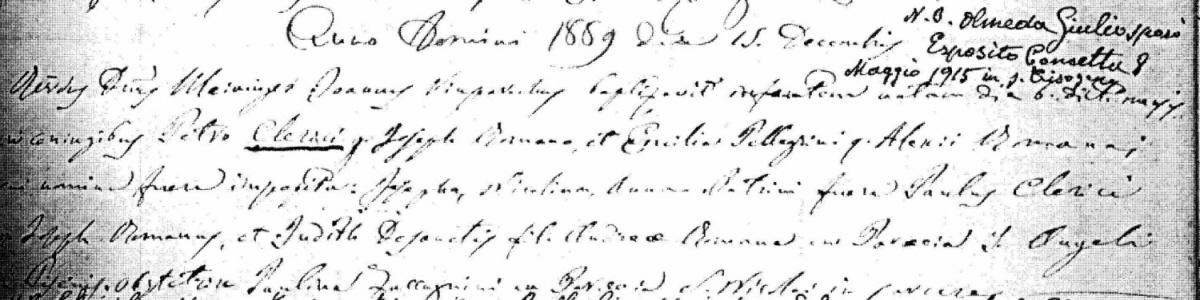 Anno Domini 1889 die 15. Decembris
N. B. Olmeda Giulio sposò
Esposito Consetta 8
Maggio 1915 in S. Crisogono
Rdus Dnus Joannes baptizavit infantem natam die 6. dicti mensis
coniugibus Petro Clerici q. Joseph Romano, et Emilia Pellegrini q. Alexii Romana
nomina fuere imposita: Josepha, Nicolina, Anna Patrini fuere Paulus Clerici
Joseph Romanus, et Judith Desanctis fil. Andreae Romana ex Paroecia S. Angeli
obstetrix Paulina Zaccagnini ex Paroecia S. Nicolai in Carcere